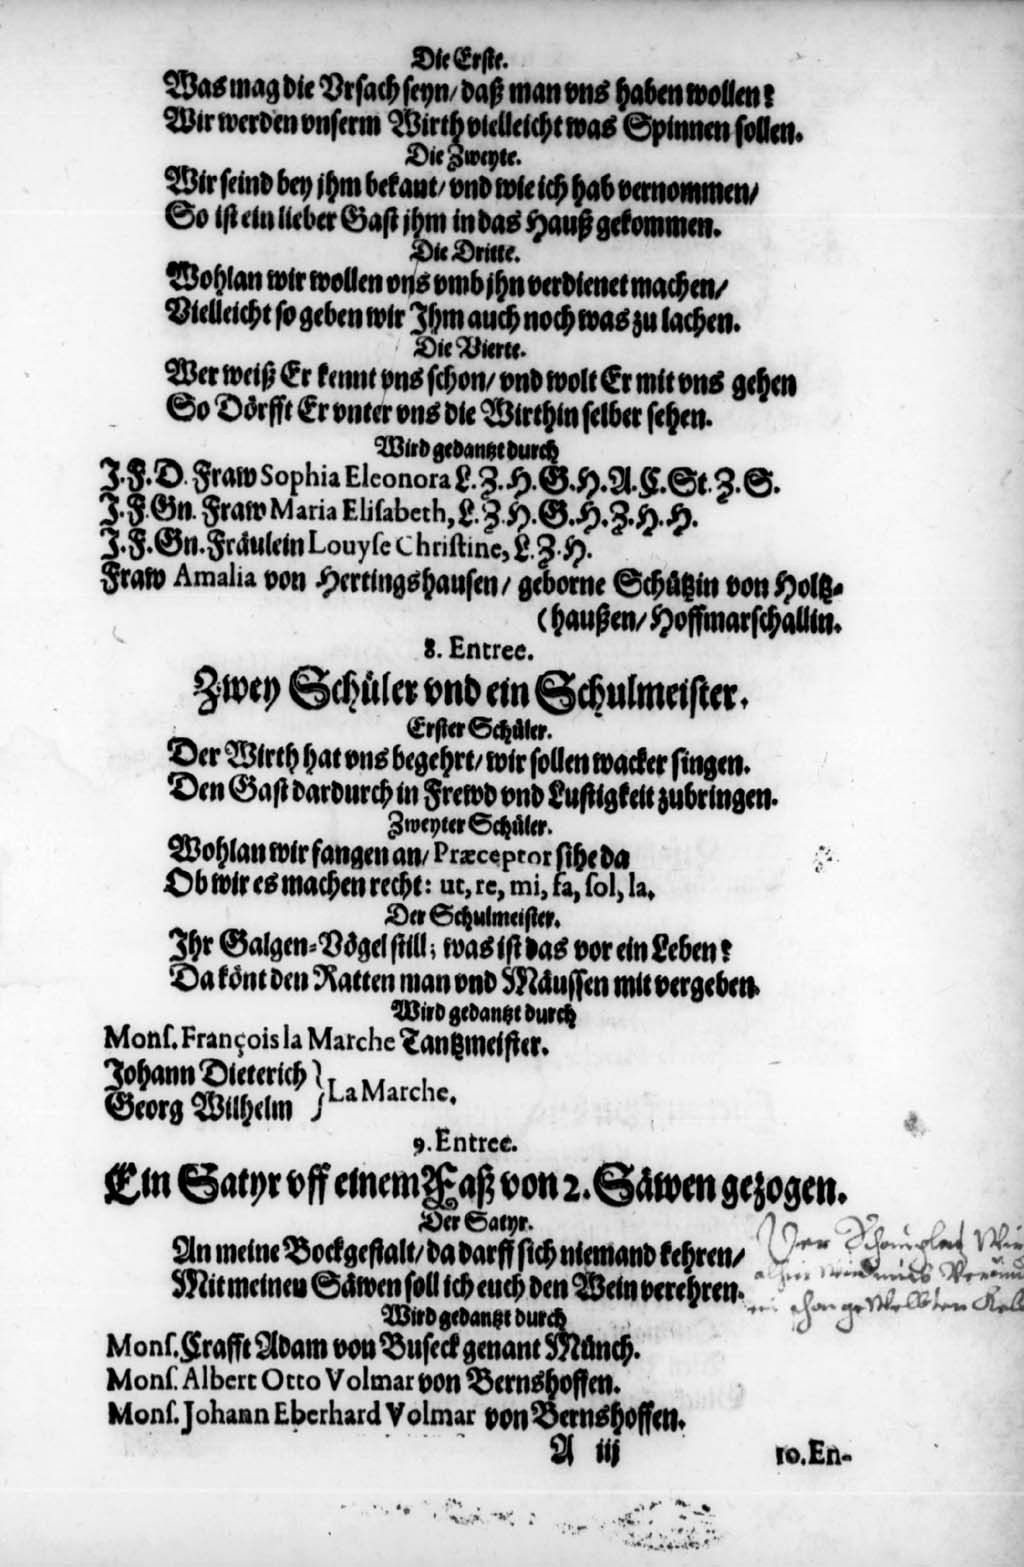 Die Erste.
Was mag die Vrsach seyn/ daß man vns haben wollen?
Wir werden vnserm Wirth vielleicht was Spinnen sollen.
Die Zweyte.
Wir seind bey jhm bekant/ vnd wie ich hab vernommen/
So ist ein lieber Gast jhm in das Hauß gekommen.
Die Dritte.
Wohlan wir wollen vns vmb jhn verdienet machen/
Vielleicht so geben wir Jhm auch noch was zu lachen.
Die Vierte.
Wer weiß Er kennt vns schon/ vnd wolt Er mit vns gehen
So Dörfft Er vnter vns die Wirthin selber sehen.
Wird gedantzt durch
J.F.D. Fraw Sophia Eleonora L.Z.H.G.H.A.C.St.Z.S.
J.F.Gn. Fraw Maria Eliſabeth, L.Z.H.G.H.Z.H.H.
J.F.Gn. Fräulein Louyſe Chriſtine, L.Z.H.
Fraw Amalia von Hertingshausen/ geborne Schützin von Holtz-
(haußen/ Hoffmarschallin.
8. Entree.
Zwey Schüler vnd ein Schulmeister.
Erster Schüler.
Der Wirth hat vns begehrt/ wir sollen wacker singen.
Den Gast dardurch in Frewd vnd Lustigkeit zubringen.
Zweyter Schüler.
Wohlan wir fangen an/ Præceptor sihe da
Ob wir es machen recht: ut, re, mi, fa, ſol, la.
Der Schulmeister.
Jhr Galgen-Vögel still; was ist das vor ein Leben?
Da könt den Ratten man vnd Mäussen mit vergeben.
Wird gedantzt durch
Monſ. François la Marche Tantzmeister.
Johann Dieterich } La Marche.
Georg Wilhelm
9. Entree.
Ein Satyr vff einem Faß von 2. Säwen gezogen.
Der Satyr.
An meine Bockgestalt/ da darff sich niemand kehren/
Mit meinen Säwen soll ich euch den Wein verehren.
Der Schauplatz
Wird gedantzt durch
Monſ. Crafft Adam von Buseck genant Münch.
Monſ. Albert Otto Volmar von Bernshoffen.
Monſ. Johann Eberhard Volmar von Bernshoffen.
A iij
10. En-